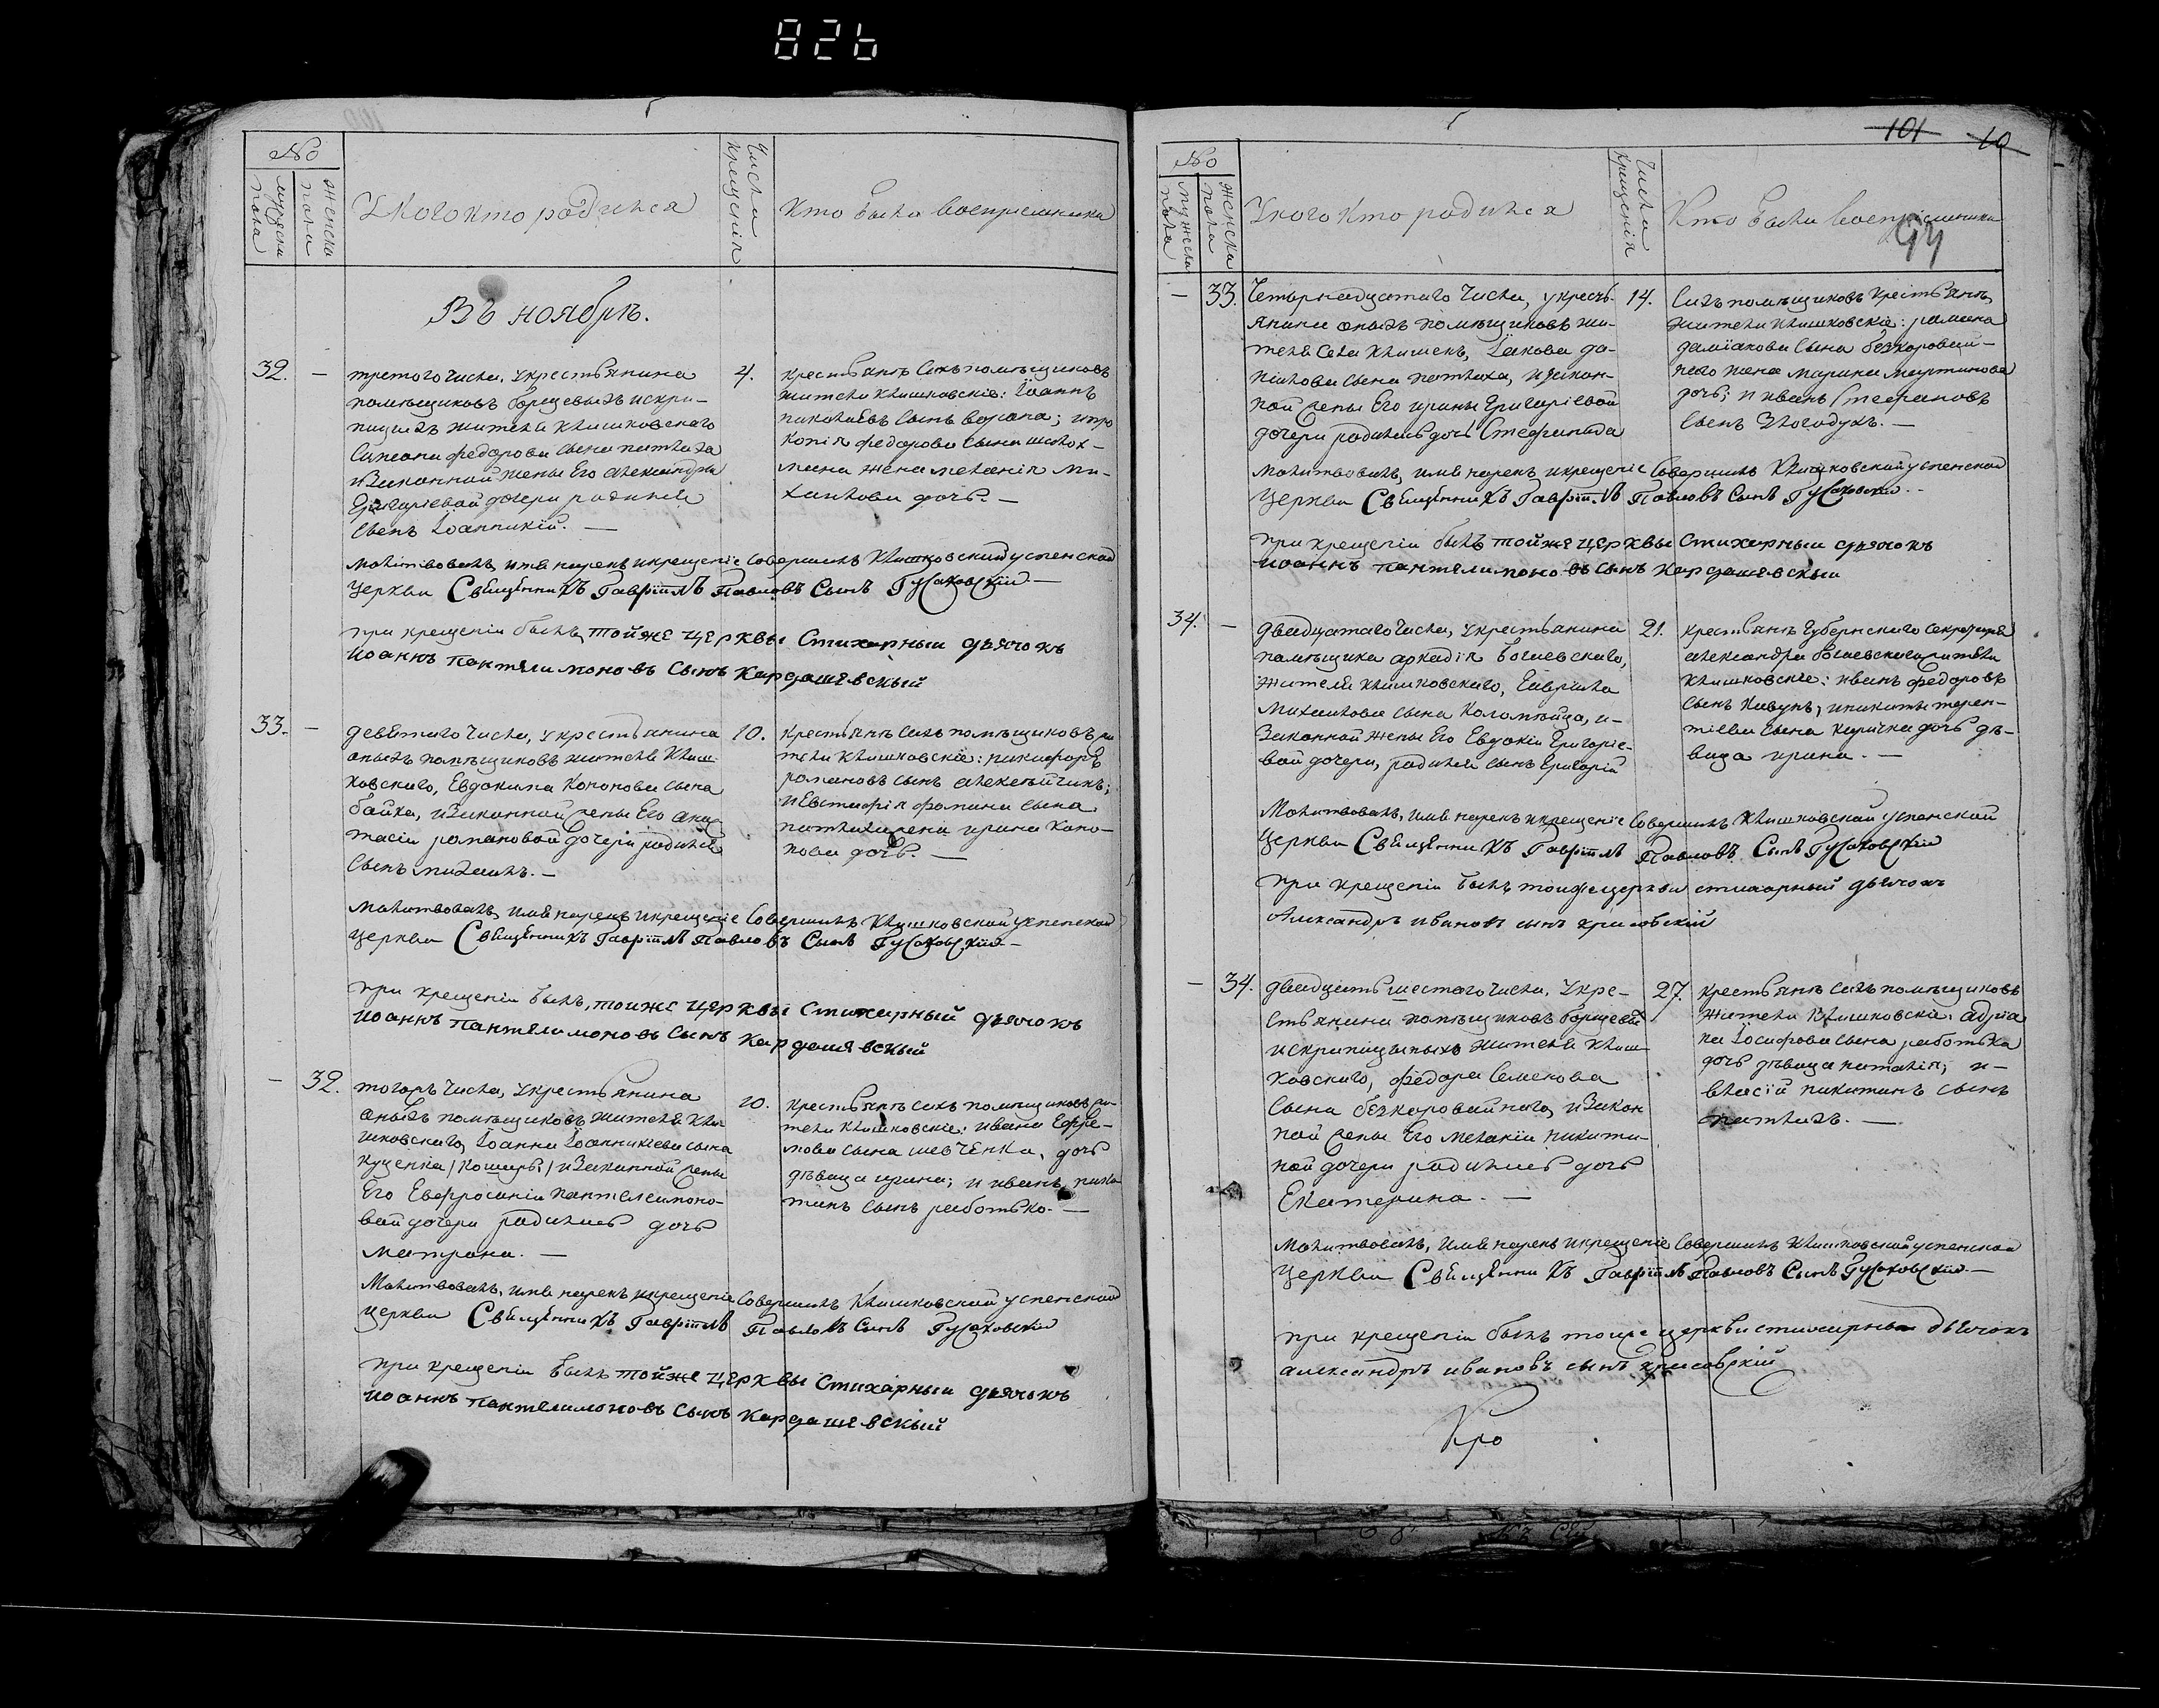 826
№
мужеска пола
женска пола
У Кого кто родился
Числа крещенія
Кто были воспріемники
Въ ноябрѣ.
32. — третого числа, у крестьянина
помѣщиковъ борщевыхъ искри-
пицыхъ жителя клишковского
Симеона федорова сына патлаха
изаконной жены Его александры
Григоріевой дочери родился
сынъ Іоанникій. —
4. крестьянѣ сихъ помѣщиковъ
жители клишковскіе: Іоаннъ
николаевъ сынъ ворона; ипро
копія федорова сына шолох-
мена жена меланія ми-
хаилова дочь. —
Молитвовалъ, имя нарекъ икрещеніе совершилъ Клишковской успенской
церкви Священникъ Гавріилъ Павловъ Сынъ Гусаковскій —
при крещеніи былъ тойже церквы Стихарный дьячокъ
иоаннъ пантелимоновъ сынъ кардашевскый
33. — девятого числа, укрестьянина
оныхъ помѣщиковъ жителя Клиш-
ковского, Евдокима Кононова сына
байка, изаконной жены Его анас
тасіи романовой дочери родился
сынъ михаилъ. —
10. крестьянѣ сихъ помѣщиковъ жи
тели клишковскіе: никифоръ
романовъ сынъ алексѣйчикъ;
иЕвстафія фомина сына
патлаха жена ирина коно-
нова дочь. —
Молитвовалъ, имя нарекъ икрещеніе совершилъ Клишковской успенской
церкви Священникъ Гавріилъ Павловъ Сынъ Гусаковскій —
при крещеніи былъ, тоиже церквы Стихарный дьячокъ
иоаннъ пантелимоновъ сынъ кардашевскый
— 32. тогожъ числа, укрестьянина
оныхъ помѣщиковъ жителя кли-
шковского, Іоанна Іоанникіева сына
куценка /кошира/ изаконной жены
Его Евфросиніи пантелеимоно-
вой дочери родилась дочь
матрона. —
10. крестьянѣ сихъ помѣщиковъ жи-
тели клишковскіе: ивана Ефре-
мова сына шевченка, дочь
дѣвица ирина; и иванъ ники
тинъ сынъ работько. —
Молитвовалъ, имя нарекъ икрещеніе совершилъ Клишковской успенской
церкви Священникъ Гавріилъ Павловъ Сынъ Гусаковскій
при крещеніи былъ тойже церквы Стихарный дьячокъ
иоаннъ пантелимоновъ сынъ кардашевскый
101 10
№
мужеска пола
женска пола
У кого Кто родился
Числа крещенія
Кто были воспріемники
— 33. Четырнадцатаго числа, укресть-
янина оныхъ помѣщиковъ жи-
теля села клишекъ, Іакова да-
ніилова сына патлаха, изакон-
ной жены Его ирины Григоріевой
дочери родилась дочь Стефанида
14. Сихъ помѣщиковъ крестьянѣ,
жители клишковскіе: романа
даміанова сына безкоровай-
ного жена марина мартинова
дочь; и иванъ Стефановъ
сынъ
Молитвовалъ, имя нарекъ икрещеніе совершилъ Клишковской успенской
церкви Священникъ Гавріилъ Павловъ Сынъ Гусаковскій —
при крещеніи былъ тойже церквы Стихарныи дьячокъ
иоаннъ пантелимоновъ сынъ кардашевскыи
34. — двадцатаго числа, укрестьянина
помѣщика аркадія богаевского,
жителя клишковского, Гавріила
Михаилова сына Коломѣйца, и-
законной жены Его Евдокіи Григоріе-
вой дочери, родился сынъ Григорій
21. крестьянѣ губернского секретаря
александра богаевского жители
клишковскіе: иванъ федоровъ
сынъ кавунъ; иникиты терен-
тіева сына дочь дѣ-
вица ирина. —
Молитвовалъ, имя нарекъ икрещеніе совершилъ Клишковской успенской
Церкви Священникъ Гавріилъ Павловъ Сынъ Гусаковскій
при крещеніи былъ тоиже церкви стихарный дьячокъ
Александръ ивановъ сынъ
— 34. двадцать шестого числа, укре-
стьянина помѣщиковъ борщевыхъ
искрипицыныхъ жителя клиш-
ковского, федора Семенова
сына безкоровайного, изакон
ной жены Его меланіи никити-
ной дочери родилась дочь
Екатерина. —
27. крестьянѣ сихъ помѣщиковъ
жители клишковскіе: адріа
на Іосифова сына работька
дочь дѣвица наталія; и-
власій никитинъ сынъ
патлахъ. —
Молитвовалъ, имя нарекъ икрещеніе совершилъ Клишковской успенской
церкви Священникъ Гавріилъ Павловъ Сынъ Гусаковскій —
при крещеніи былъ тоиже церкви стихарный дьячокъ
александръ ивановъ сынъ
Кро